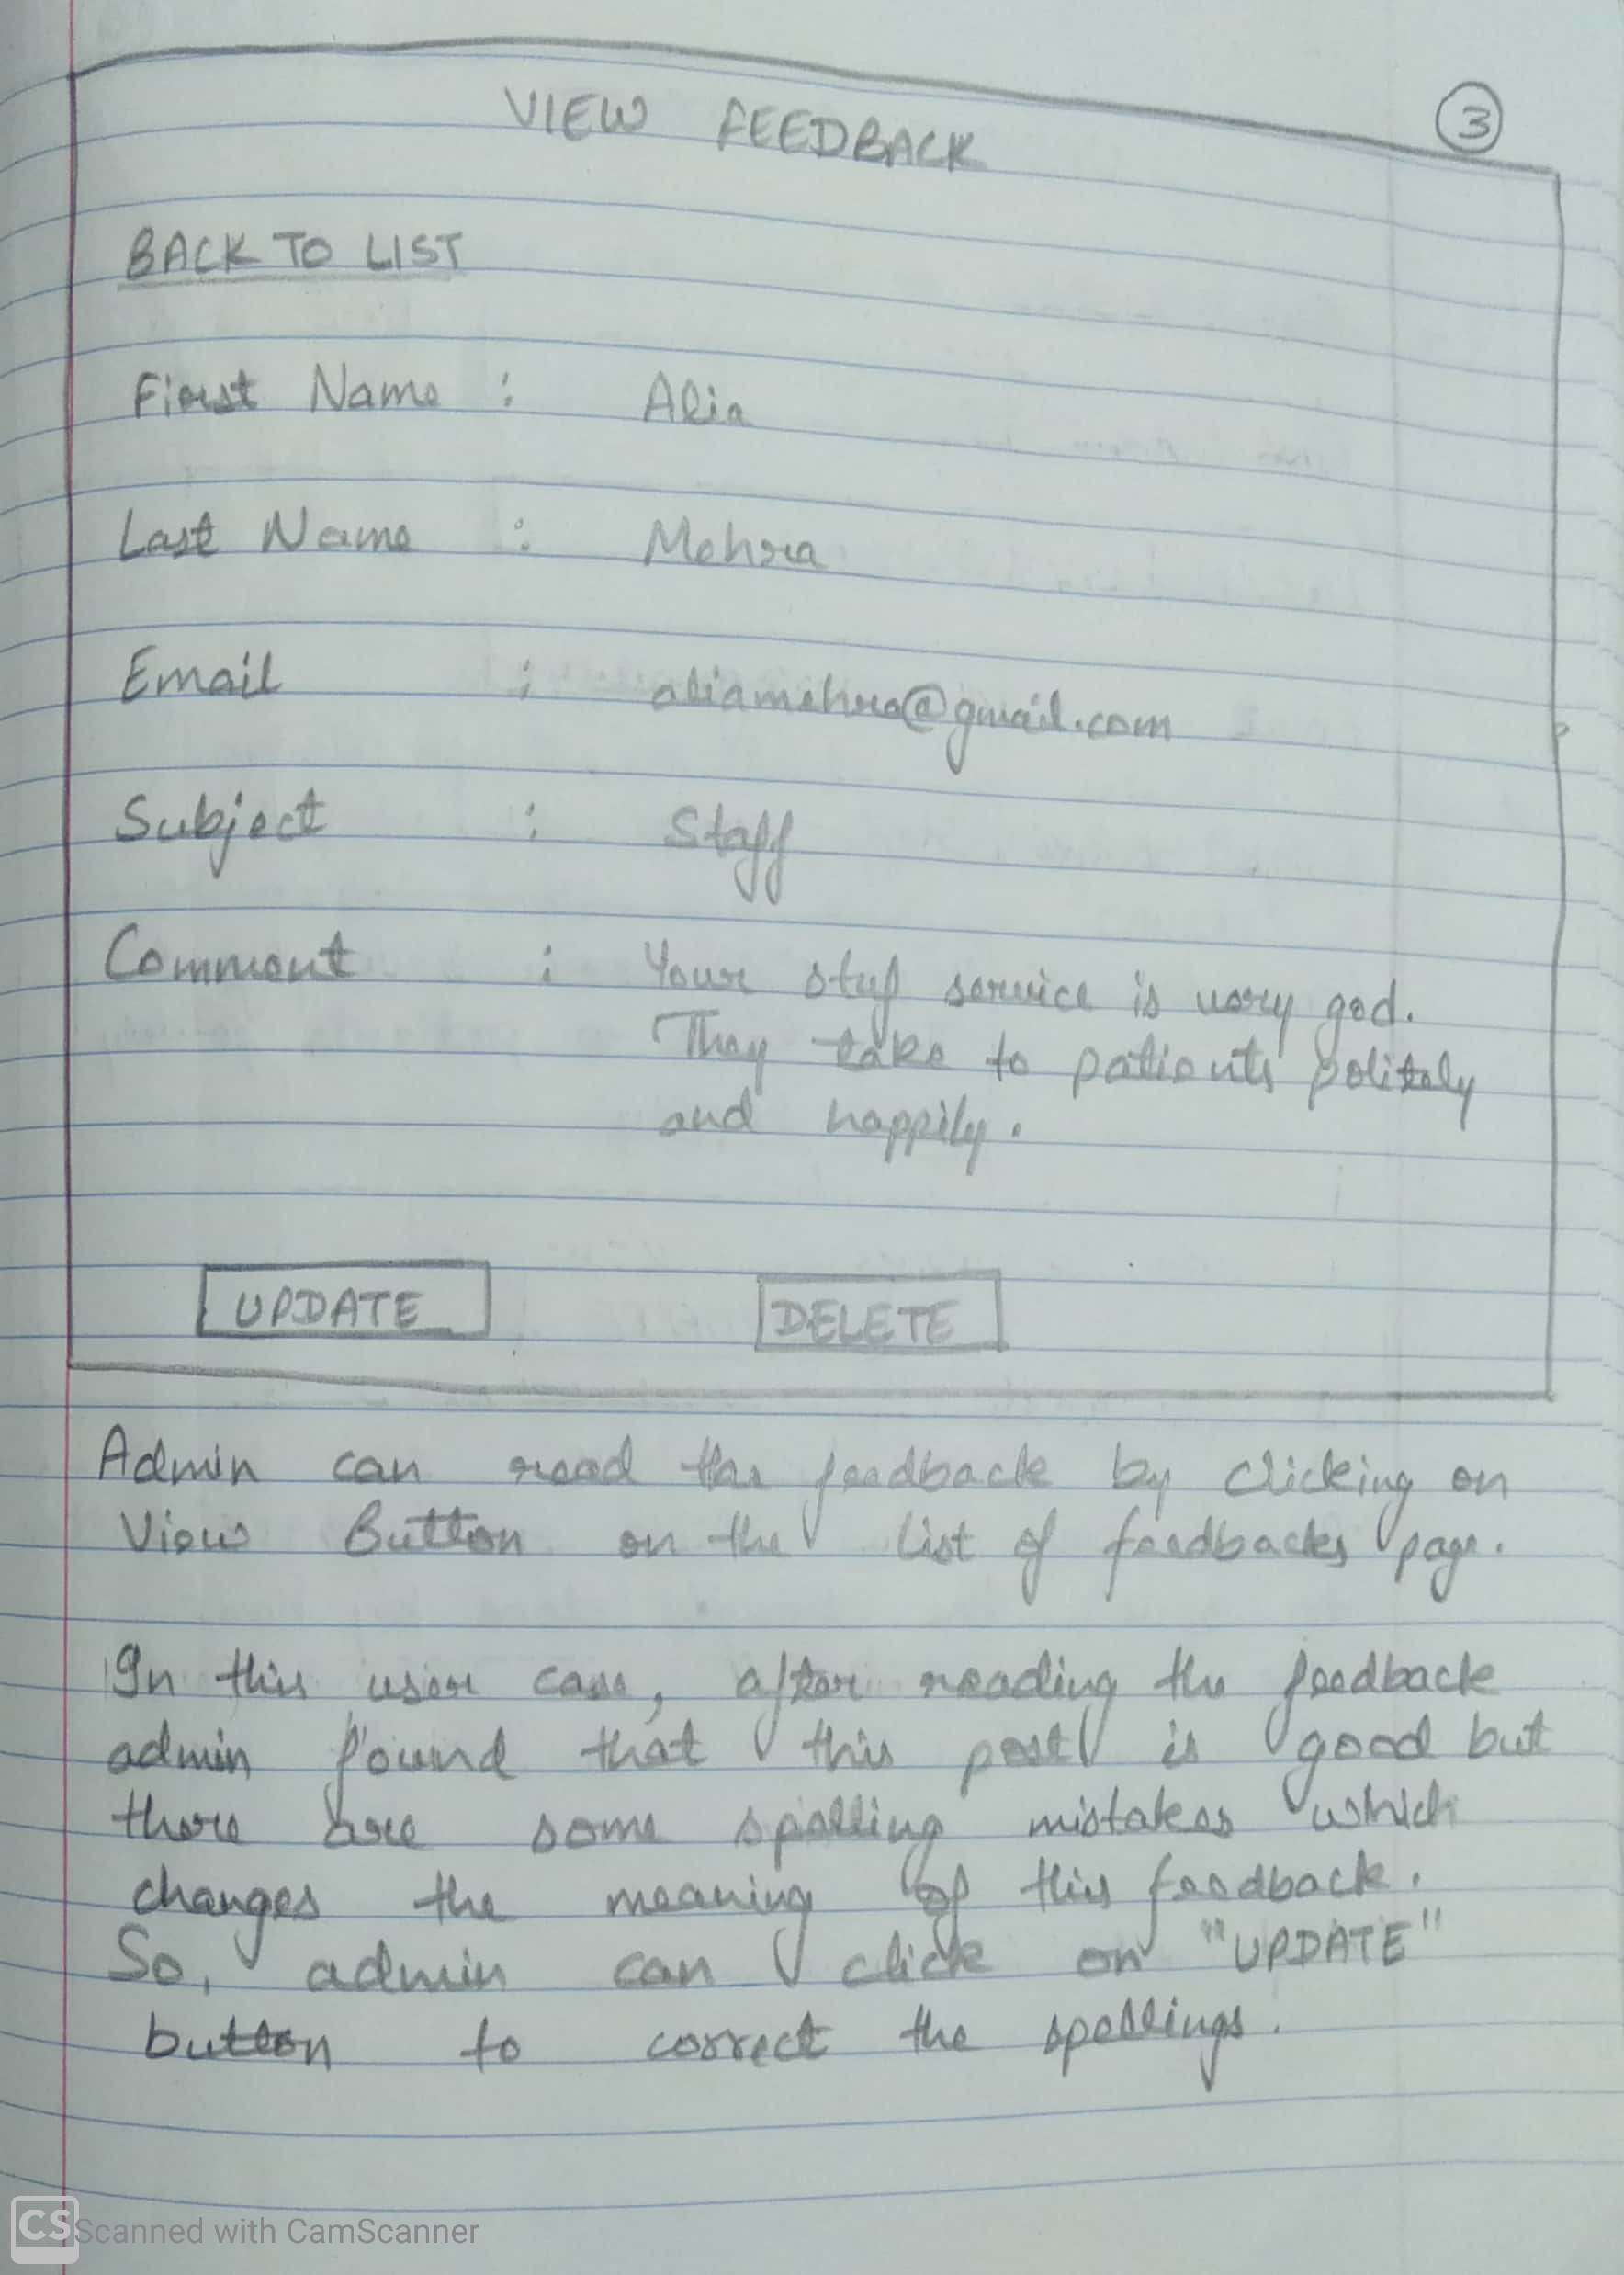 VIEW FEEDBACK
3
BACK TO LIST
First Name : Alia
Last Name : Mehra
Email : aliamehra@gmail.com
Subject : Staff
Comment : Your stuf service is very god.
They take to patients politely
and happily.
UPDATE DELETE
Admin can read the feedback by clicking on
View Button on the list of feedbacks page.
In this user case, after reading the feedback
admin found that this post is good but
there are some spelling mistakes which
changes the meaning of this feedback.
So, admin can click on "UPDATE"
button to correct the spellings.
CS Scanned with CamScanner